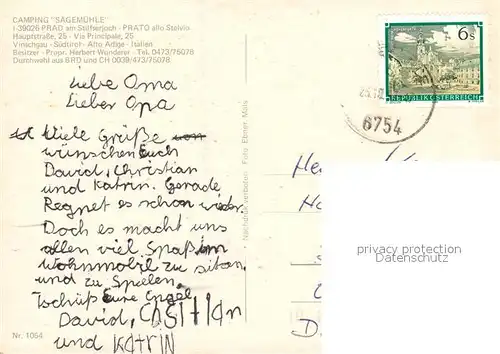 CAMPING "SÄGEMÜHLE"
I-39026 PRAD am Stilfserjoch - PRATO allo Stelvio
Hauptstraße, 25 - Via Principale, 25
Vinschgau - Südtirol - Alto Adige - Italien
Besitzer - Propr. Herbert Wunderer - Tel. 0473/75078
Durchwahl aus BRD und CH 0039/473/75078
Liebe Oma
Lieber Opa
Viele Grüße von
wünschen Euch
David, Christian
und Katrin. Gerade
Regnet es schon wider.
Doch es macht uns
allen viel Spaß im
Wohnmobil zu sitzen
und zu Spielen.
Tschüß Eure Engel
David, CHSITIAN
und KATRIN
Nr. 1064
Nachdruck verboten Foto Ebner Mals
6s
REPUBLIK ÖSTERREICH
6754
He
H
D
privacy protection
Datenschutz